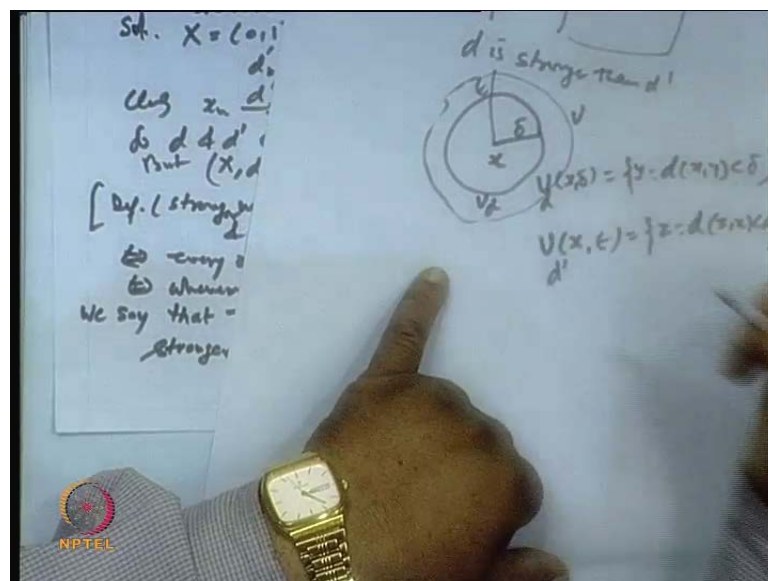 Sol. X = (0,1
d'
x_n d'
d & d'
But (X, d
[Def. (stronger
⇔ every
⇔ whenever
We say that
stronger
d is stronger than d'
ε
δ
U
x
V_d
V_d(x,δ) = {y : d(x,y) < δ
U_d'(x, ε) = {z : d(z,x) <
NPTEL